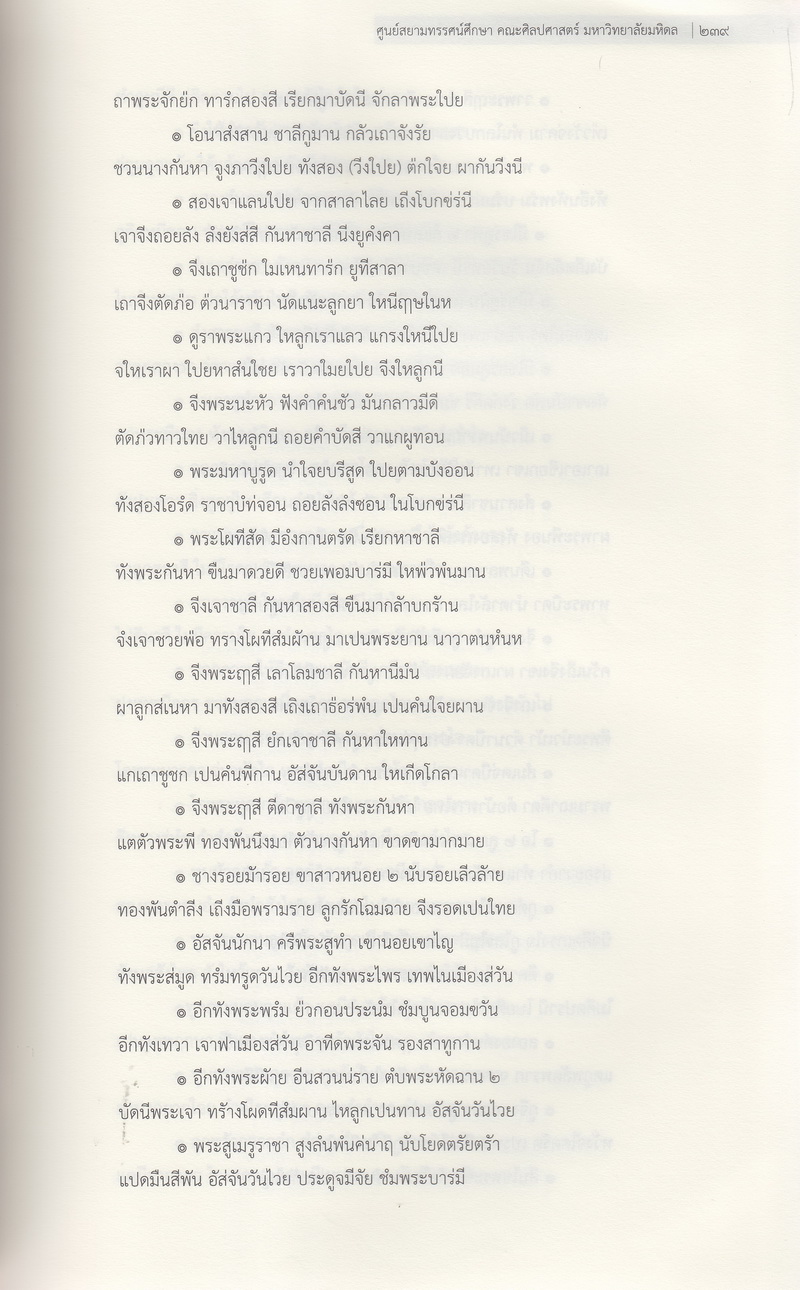 ศูนย์สยามทรรศน์ศึกษา คณะศิลปศาสตร์ มหาวิทยาลัยมหิดล | ๒๓๙
ถาพระจักย่ก ทาร่กสองสี เรียกมาบัดนี จักลาพระไปย
๏ โอนาส่งสาน ชาลีกูมาน กลัวเถาจังรัย
ชวนนางกันหา จูงภาวีงไปย ทังสอง (วีงไปย) ต่กใจย ผากันวีงนี
๏ สองเจาแลนไปย จากสาลาไลย เถีงโบกข่ร่นี
เจาจีงถอยลัง ล่งยังส่สี กันหาชาลี นีงยูค่งคา
๏ จีงเถาชูช่ก ไมเหนทาร่ก ยูทีสาลา
เถาจีงตัดภ่อ ต่วนาราชา นัดแนะลูกยา ใหนีฤๅษในห
๏ ดูราพระแกว ใหลูกเราแลว แกรงใหนีไปย
จใหเราผา ไปยหาส่นไชย เราวาไมยไปย จีงใหลูกนี
๏ จีงพระนะหัว ฟังคำค่นชัว มันกลาวมีดี
ตัดภ่วทาวไทย วาไหลูกนี ถอยคำบัดสี วาแกผูทอน
๏ พระมหาบูรูด น่ำใจยบรีสูด ไปยตามบังออน
ทังสองโอร่ด ราชาบ่ท่จอน ถอยลังล่งซอน ในโบกข่ร่นี
๏ พระโผทีสัด มีอ่งกานตรัด เรียกหาชาลี
ทังพระกันหา ขืนมาดวยดี ชวยเพอมบาร่มี ใหพ่วพ่นมาน
๏ จีงเจาชาลี กันหาสองสี ขืนมากล้าบกร้าน
จ่งเจาชวยพ่อ ทรางโผทีส่มผ้าน มาเปนพระยาน นาวาตนห่นห
๏ จีงพระฤๅสี เลาโลมชาลี กันหานีม่น
ผาลูกส่เนหา มาทังสองสี เถิงเถาธ่อร่พ่น เปนค่นใจยผาน
๏ จีงพระฤๅสี ย่กเจาชาลี กันหาใหทาน
แกเถาชูชก เปนค่นพีกาน อัส่จันบันดาน ใหเกีดโกลา
๏ จีงพระฤๅสี ตีดาชาลี ทังพระกันหา
แตตัวพระพี ทองพันนึงมา ตัวนางกันหา ขาดขามากมาย
๏ ชางรอยม้ารอย ขาสาวหนอย ๒ นับรอยเลีวล้าย
ทองพันตำลีง เถีงมือพรามราย ลูกรักโฉมฉาย จีงรอดเปนไทย
๏ อัสจันนักนา ครืพระสูทำ เขานอยเขาไญ
ทังพระส่มูด ทร่มทรูดวันไวย อีกทังพระไพร เทพไนเมืองส่วัน
๏ อีกทังพระพร่ม ย่วกอนประน่ม ช่มบูนจอมขวัน
อีกทังเทวา เจาฟาเมืองส่วัน อาทีดพระจัน รองสาทูกาน
๏ อีกทังพระผ้าย อีนสวนน่ราย ต่บพระหัดฉาน ๒
บัดนีพระเจา ทร้างโผดทีส่มผาน ไหลูกเปนทาน อัสจันวันไวย
๏ พระสูเมรูราชา สูงล่นพ่นค่นาฤ นับโยดตรัยตร้า
แปดมืนสีพัน อัส่จันวันไวย ประดูจมีจัย ช่มพระบาร่มี